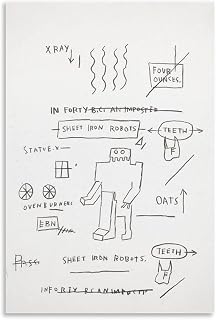 X RAY
FOUR
OUNCES.
IN FORTY B.C. AN IMPOSTER
SHEET IRON ROBOTS
TEETH
F
STATUE.X
OATS
OVEN BURNERS
EBN
TEETH
SHEET IRON ROBOTS.
F
IN FORTY BC AN IMPOSTE